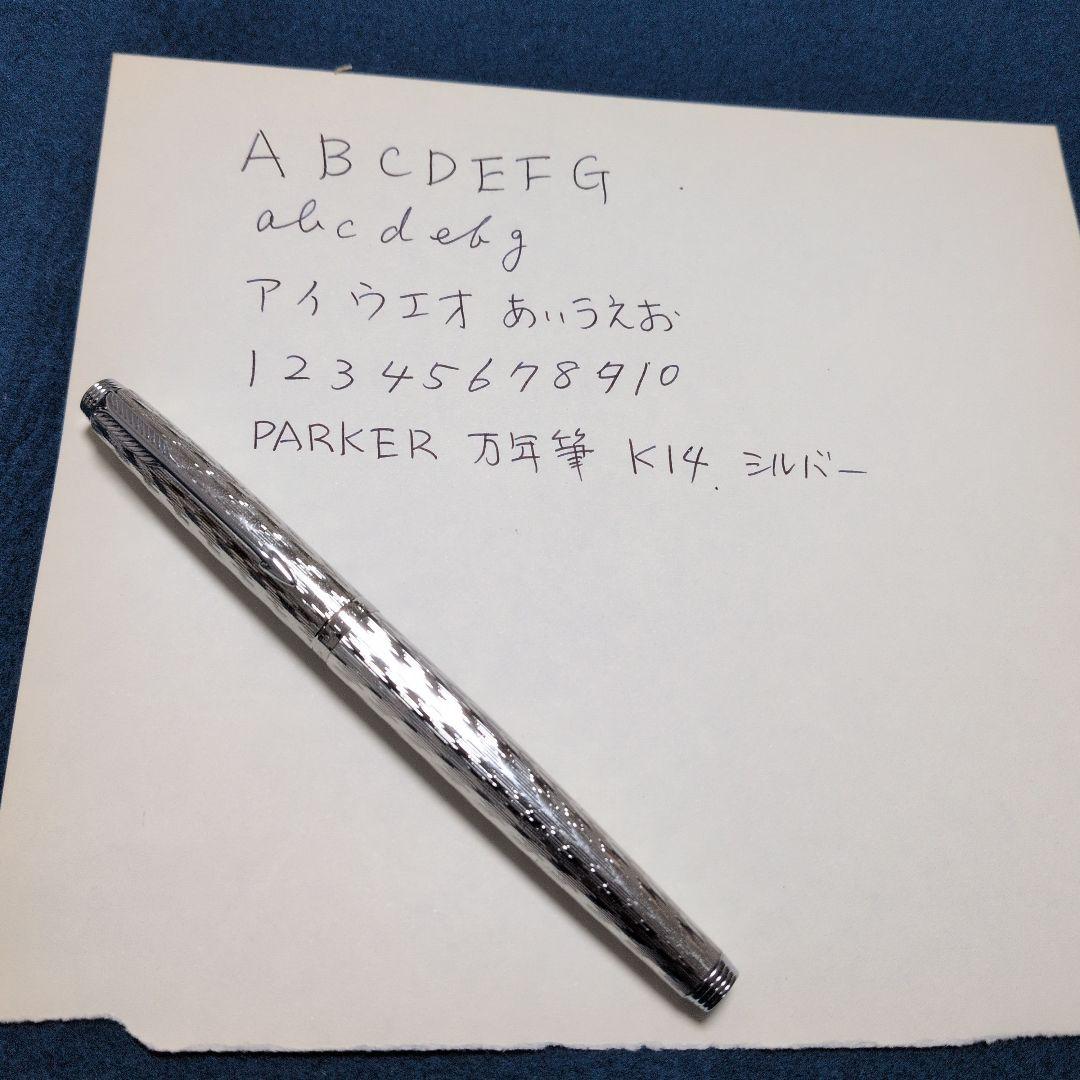 A B C D E F G
a b c d e f g
アイウエオ あいうえお
1 2 3 4 5 6 7 8 9 10
PARKER 万年筆 K14. シルバー